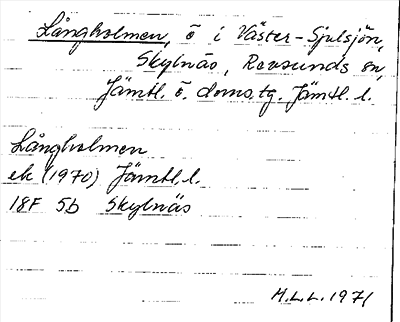 Långholmen, ö i Väster-Sjulsjön,
Skylnäs, Revsunds sn,
Jämtl. ö. doms.tg. Jämtl. l.
Långholmen
ek (1970) Jämtl. l.
18F 5b Skylnäs
H.L.L. 1971